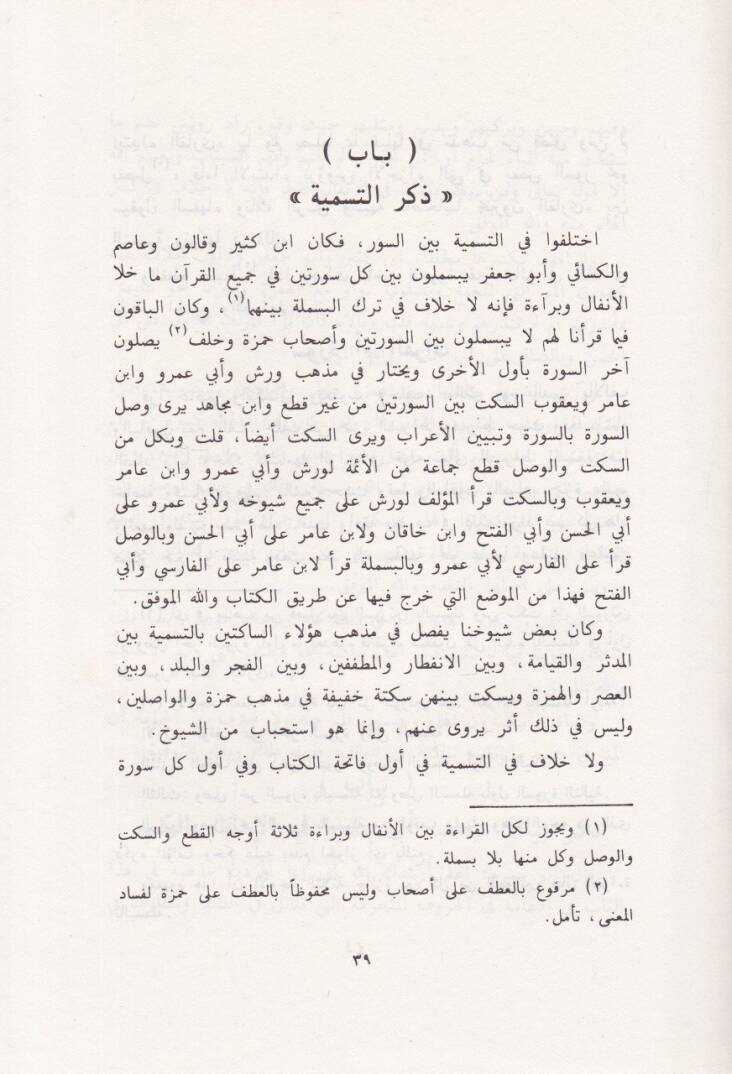 ( بـاب )
« ذكر التسمية »
اختلفوا في التسمية بين السور، فكان ابن كثير وقالون وعاصم
والكسائي وأبو جعفر يبسملون بين كل سورتين في جميع القرآن ما خلا
الأنفال وبرآءة فإنه لا خلاف في ترك البسملة بينهما(١)، وكان الباقون
فيما قرأنا لهم لا يبسملون بين السورتين وأصحاب حمزة وخلف(٢) يصلون
آخر السورة بأول الأخرى ويختار في مذهب ورش وأبي عمرو وابن
عامر ويعقوب السكت بين السورتين من غير قطع وابن مجاهد يرى وصل
السورة بالسورة وتبيين الأعراب ويرى السكت أيضاً، قلت وبكل من
السكت والوصل قطع جماعة من الأئمة لورش وأبي عمرو وابن عامر
ويعقوب وبالسكت قرأ المؤلف لورش على جميع شيوخه ولأبي عمرو على
أبي الحسن وأبي الفتح وابن خاقان ولابن عامر على أبي الحسن وبالوصل
قرأ على الفارسي لأبي عمرو وبالبسملة قرأ لابن عامر على الفارسي وأبي
الفتح فهذا من الموضع التي خرج فيها عن طريق الكتاب والله الموفق.
وكان بعض شيوخنا يفصل في مذهب هؤلاء الساكتين بالتسمية بين
المدثر والقيامة، وبين الانفطار والمطففين، وبين الفجر والبلد، وبين
العصر والهمزة ويسكت بينهن سكتة خفيفة في مذهب حمزة والواصلين،
وليس في ذلك أثر يروى عنهم، وإنما هو استحباب من الشيوخ.
ولا خلاف في التسمية في أول فاتحة الكتاب وفي أول كل سورة
(١) ويجوز لكل القراءة بين الأنفال وبراءة ثلاثة أوجه القطع والسكت
والوصل وكل منها بلا بسملة.
(٢) مرفوع بالعطف على أصحاب وليس محفوظاً بالعطف على حمزة لفساد
المعنى، تأمل.
٣٩